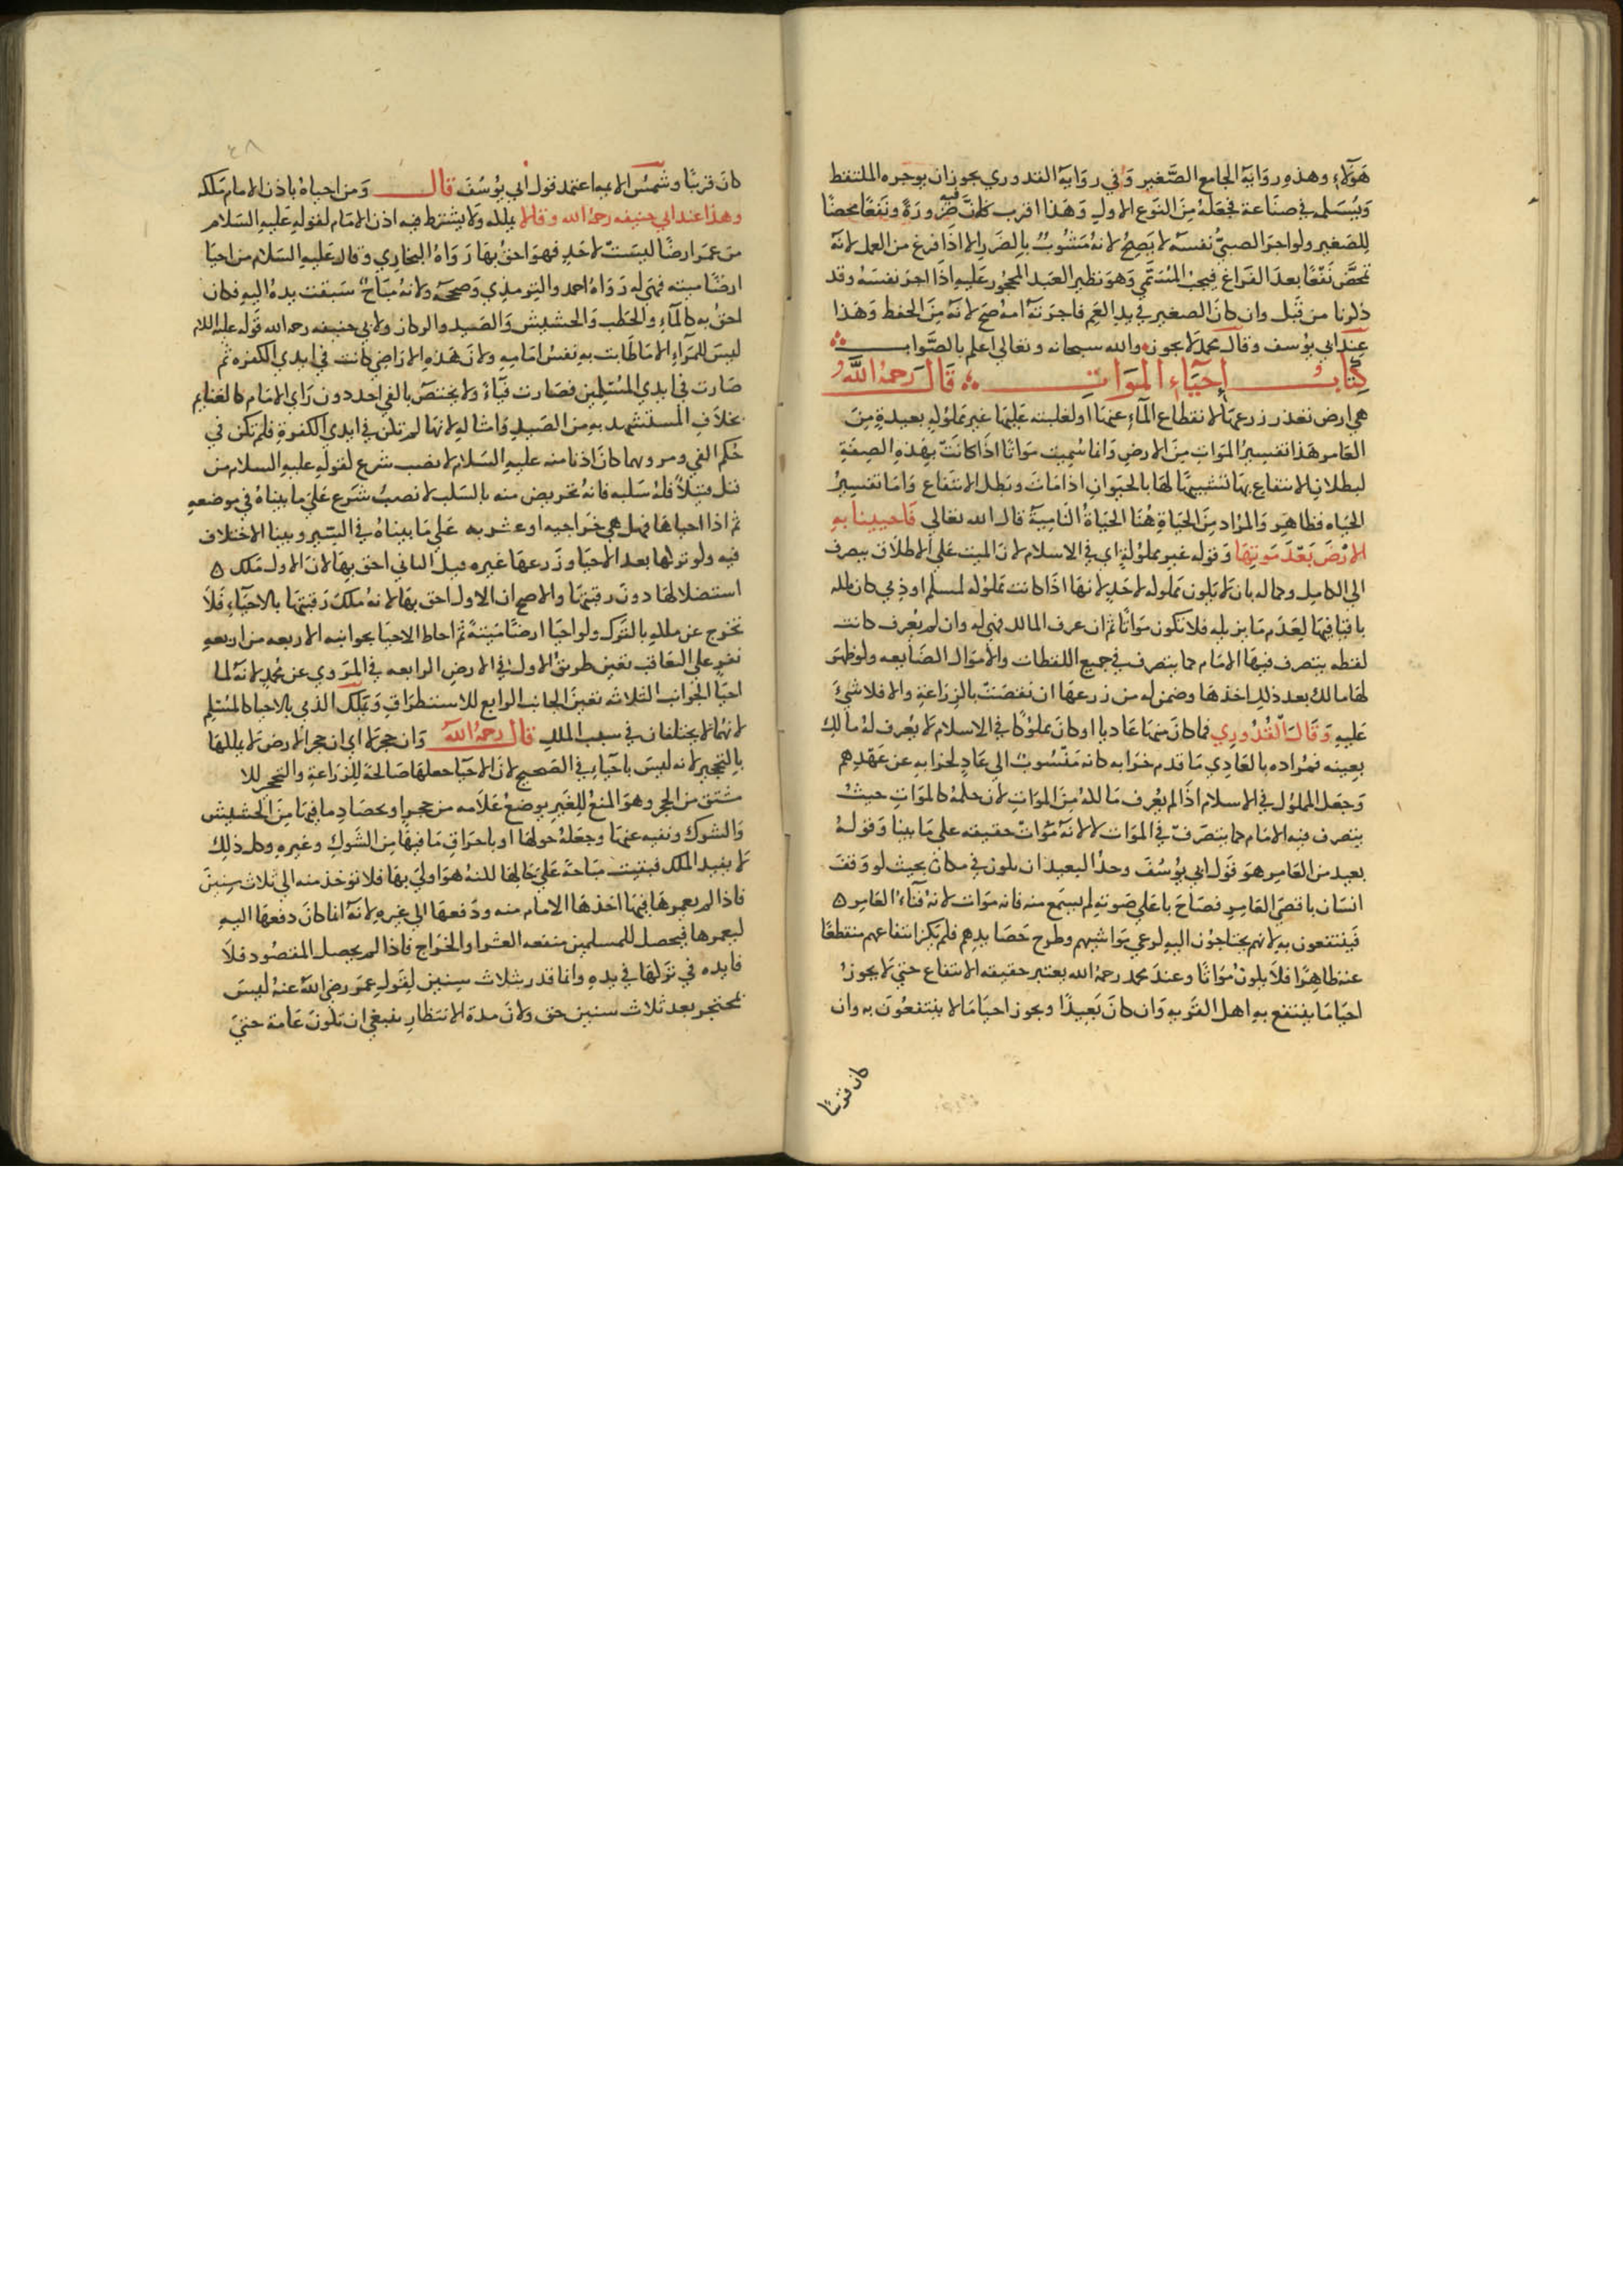 هَؤلآء وهذه روَاية الجامع الصَّغير وَفي روَاية القدوري يجوز ان يوجره الملتقط
وَيُسَلمه في صنَاعة فجعَلهُ مِنَ النَوع الاولِ وَهَذا اقرب لان فيه ضَرورَةً ونَفعًا محضًا
لِلصَغير ولو اجرَ الصبيّ نفسَه لا يَصِحُ لانهُ مَشُوبٌ بالضَررِ الا اذا فرغ من العمل لانهُ
تمحضَّ نَفعًا بعدَ الفَراغ فيجبُ المُسَمَّي وَهوَ نظير العَبدِ المحجُور عَليهِ اذَا اجرَ نفسَهُ وقد
ذكرنا من قَبل وان كانَ الصغير في يدِ العَمِ فاجرَته امهُ صَح لانهُ مِنَ الحفظ وَهَذا
عِندَ ابي يوُسف وقالَ محمدٌ لا يجوز والله سبحانه وتعالى اعلم بالصَّواب
كِتَابُ إحيَآءِ المَوَاتِ قَالَ رَحمهُ اللَّهُ
هي ارض تعذر زرعهَا لانقطاع المآءِ عنهَا او لغلبته عَليهَا غير مملوُكه بعيدةٍ مِنَ
العَامر هَذا تفسِيرُ المَوَاتِ مِنَ الارضِ وَانما سُميت مَوَاتًا اذَا كانَتْ بهَذهِ الصِفَةِ
لبطلانِ الانتفاعِ بهَا تشبيهًا لهَا بالحيَوانِ اذا مَاتَ وبَطل الانتفَاع وَامَا تفسِيرُ
الحيَاه فظاهِر وَالمرَاد مِنَ الحيَاةِ هُنَا الحيَاةُ النَاميَةُ قالَ الله تعَالى فَاحيينا بهِ
الارْضَ بَعْدَ مَوتِهَا وَقوله غير مملوكةٍ اي في الاسلام لانَ الميت عَلي الاطلاق ينصرف
الي الكامِل وكماله بان لا يكون مملوكه لاحَدٍ لانهَا اذَا كانت مملوكه لمسلم او ذِمي كان ملكه
باقيا فيهَا لعَدَم مَا يزيله فلا تكون مَوَاتًا ثم ان عرف المالك فهي له وان لم يُعرف كانت
لقطه يتصرف فيهَا الامَام كما يتصرف في جميع اللقطات والامَوال الضَايعه ولو ظهرَ
لهَا مالك بعد ذلك اخذهَا وضمن له من زرعهَا ان نقصَت بالزرَاعَةِ والا فلا شيءَ
عَليهِ وَقَالَ القُدُورِي فما كانَ منهَا عَاديا او كانَ مملوُكًا في الاسلام لا يُعرف لهُ مالكٌ
بعينه فمرَاده بالعَادي مَا قدم خرَابه كانه مَنْسُوبٌ الي عَادٍ لخرابهِ عن عَهْدِهم
وَجعَل المملوُك في الاسلام اذَا لم يعُرف مَالكهُ مِنَ الموَاتِ لان حكمهُ كالموَاتِ حيثُ
يتصرف فيه الامَام كما يتصَرف في الموَات لا لانهُ مَوَاتٌ حقيقه على مَا بينا وَقولهُ
بعيد من العَامِر هوَ قَول ابي يوُسُفَ وحدُ البعيد ان يكون في مكان بحيث لو وَقفَ
انسَان باقصَى العَامِر فصَاحَ باعَلي صَوتهِ لم يسمع منه فانه مَوَات لانهُ فنَاءُ العَامر
فَينتفعون بهِ لانهم يحتاجوُن اليهِ لرعي موَاشيهم وطرح حَصَايدهِم فلم يَكُن انتفاعهم منقطعًا
عنه ظاهِرًا فلا يكونُ مَوَاتًا وعندَ محمد رحمهُ الله يعتبر حقيقه الانتفاع حتي لا يجوزُ
احيَا مَا ينتفع بهِ اهل القَريهِ وَان كانَ بَعيدًا ويجوز احيَا مَا لا ينتفعُونَ به وان
كان قريبًا
٤٨
كانَ قريبًا وشمسُ الايمه اعتمد قول ابي يوُسُفَ قال وَمن احياهُ باذن الامام مَلكه
وهذا عند ابي حنيفه رحمهُ الله وقالا يملكه وَلا يشترط فيه اذن الامَام لقولهِ عَليهِ السَلام
من عمرَ ارضًا ليسَتْ لاحَدٍ فهوَ احقُ بهَا رَوَاهُ البخاري وَقالَ عَليهِ السَلام من احيَا
ارضًا ميته فهيَ له رَوَاهُ احمد والترمذي وَصححَه ولانهُ مبَاحٌ سَبقت يدهُ اليهِ فكان
احقَ به كالمآءِ والحَطب وَالحشيش وَالصَيد والركاز ولابي حنيفه رحمه الله قَوله عليه السلام
ليسَ للمرءِ الا مَا طَابت بهِ نفسُ امَامِهِ ولانَ هَذهِ الارَاضي كانت في ايدي الكفره ثم
صَارت في ايدي المُسْلمِين فصَارت فَيآءً ولا يختصّ بالفيِ احد دون رَاي الامَام كالغنايم
بخلافِ المستشهد بهِ من الصَيدِ وَامثاله لانهَا لم تكن في ايدي الكفرةِ فلم تكن في
حُكم الفيِ ومرويهما كانَ اذنا منه عليهِ السَلام لا نصب شرع لقولهِ عليه السلام من
قتل قتيلاً فلهُ سَلبه فانهُ تحريض منه بالسَلب لا نصبُ شَرع عَلي مَا بيناهُ في موضعهِ
ثم اذا احياهَا فهل هي خرَاجيه او عشريه عَلي مَا بيناهُ في السيَر وبينا الاختلاف
فيه ولو تركها بعدَ الاحيَا وزَرعهَا غيره قيل الثاني احق بهَا لانَ الاول مَلك
استغلالهَا دونَ رقبتهَا والاصح ان الاول احق بهَا لانهُ ملكَ رَقبتهَا بالاحيَاءِ فَلا
تخرج عن ملكهِ بالتَرك ولو احيَا ارضًا مَيتةً ثم احاط الاحيَا بجوانبه الاربعه من اربعهِ
نفرٍ على التعَاقب تعَين طريقُ الاولِ في الارضِ الرابعه في المرَوي عن محمدٍ لانهُ لما
احيَا الجَوَانب الثلاثه تعَينَ الجانب الرابع للاستطرَاقِ وَيَملكُ الذمي بالاحيا كالمسْلمِ
لانهُمَا لا يختلفان في سبب الملكِ قالَ رحمهُ اللهُ وَان حجرَ لا اي ان حجر الارض لا يملكهَا
بالتحجير لانه ليسَ باحيَاءٍ في الصَحيح لانَ الاحيَا جعلهَا صَالحة للزرَاعةِ والتحجير للا
مشتق من الحجرِ وهوَ المنعُ للغَيرِ بوضعِ عَلامه من حجرٍ او بحصَادِ ما فيهَا مِنَ الحَشيش
وَالشوك ونفيه عنهَا وجعَلهُ حولهَا او باحراقِ مَا فيهَا مِن الشَوكِ وغيرهِ وكل ذلِك
لا يفيد الملك فبقيت مبَاحَة عَلي حَالهَا لكنهُ هوَ اولي بهَا فلا توخذ منه الي ثلاث سِنينَ
فاذا لم يعمرهَا فيهَا اخذهَا الامام منه ودَفعهَا الي غيرهِ لانهُ انما كانَ دفعهَا اليهِ
ليعمرها فيحصل للمسلمين منفعه العشر او الخرَاج فاذا لم يحصل المقصُود فلا
فايده في تَركها في يدهِ وانما قدر بثلاث سِنين لقَولِ عمَرَ رضي اللهُ عنهُ ليسَ
لمحتجر بعد ثلاث سنين حق ولانَ مدة الانتظارِ ينبغي ان تكونَ عَامة حتي